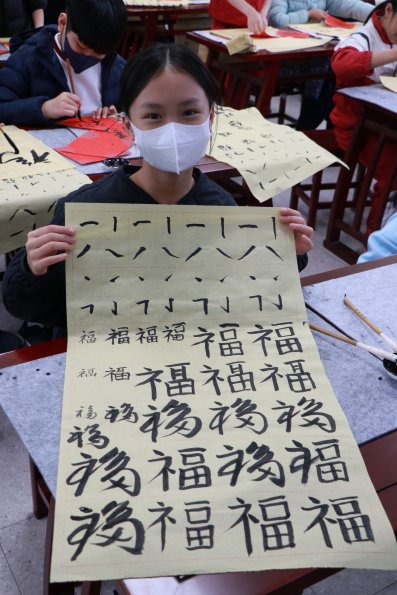 福福福福福福
福福福福福
福福福福福
福
福福福福
福福福福